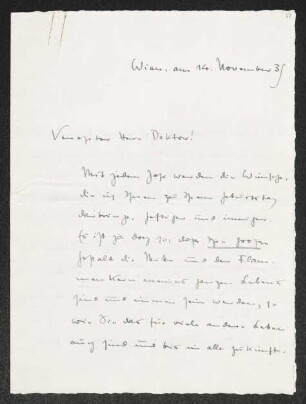 Wien, am 14. November 35
Verehrter Herr Doktor!
Mit jedem Jahr werden die Wünsche,
die ich Ihnen zu Ihrem Geburtstag
darbringe, heftiger und inniger.
Es ist ja doch so, dass Ihre
Gestalt die Mitte und der
meines ganzen Lebens
sind und immer sein werden, so
wie Sie das für viele andere Leben
auch sind und bis in alle